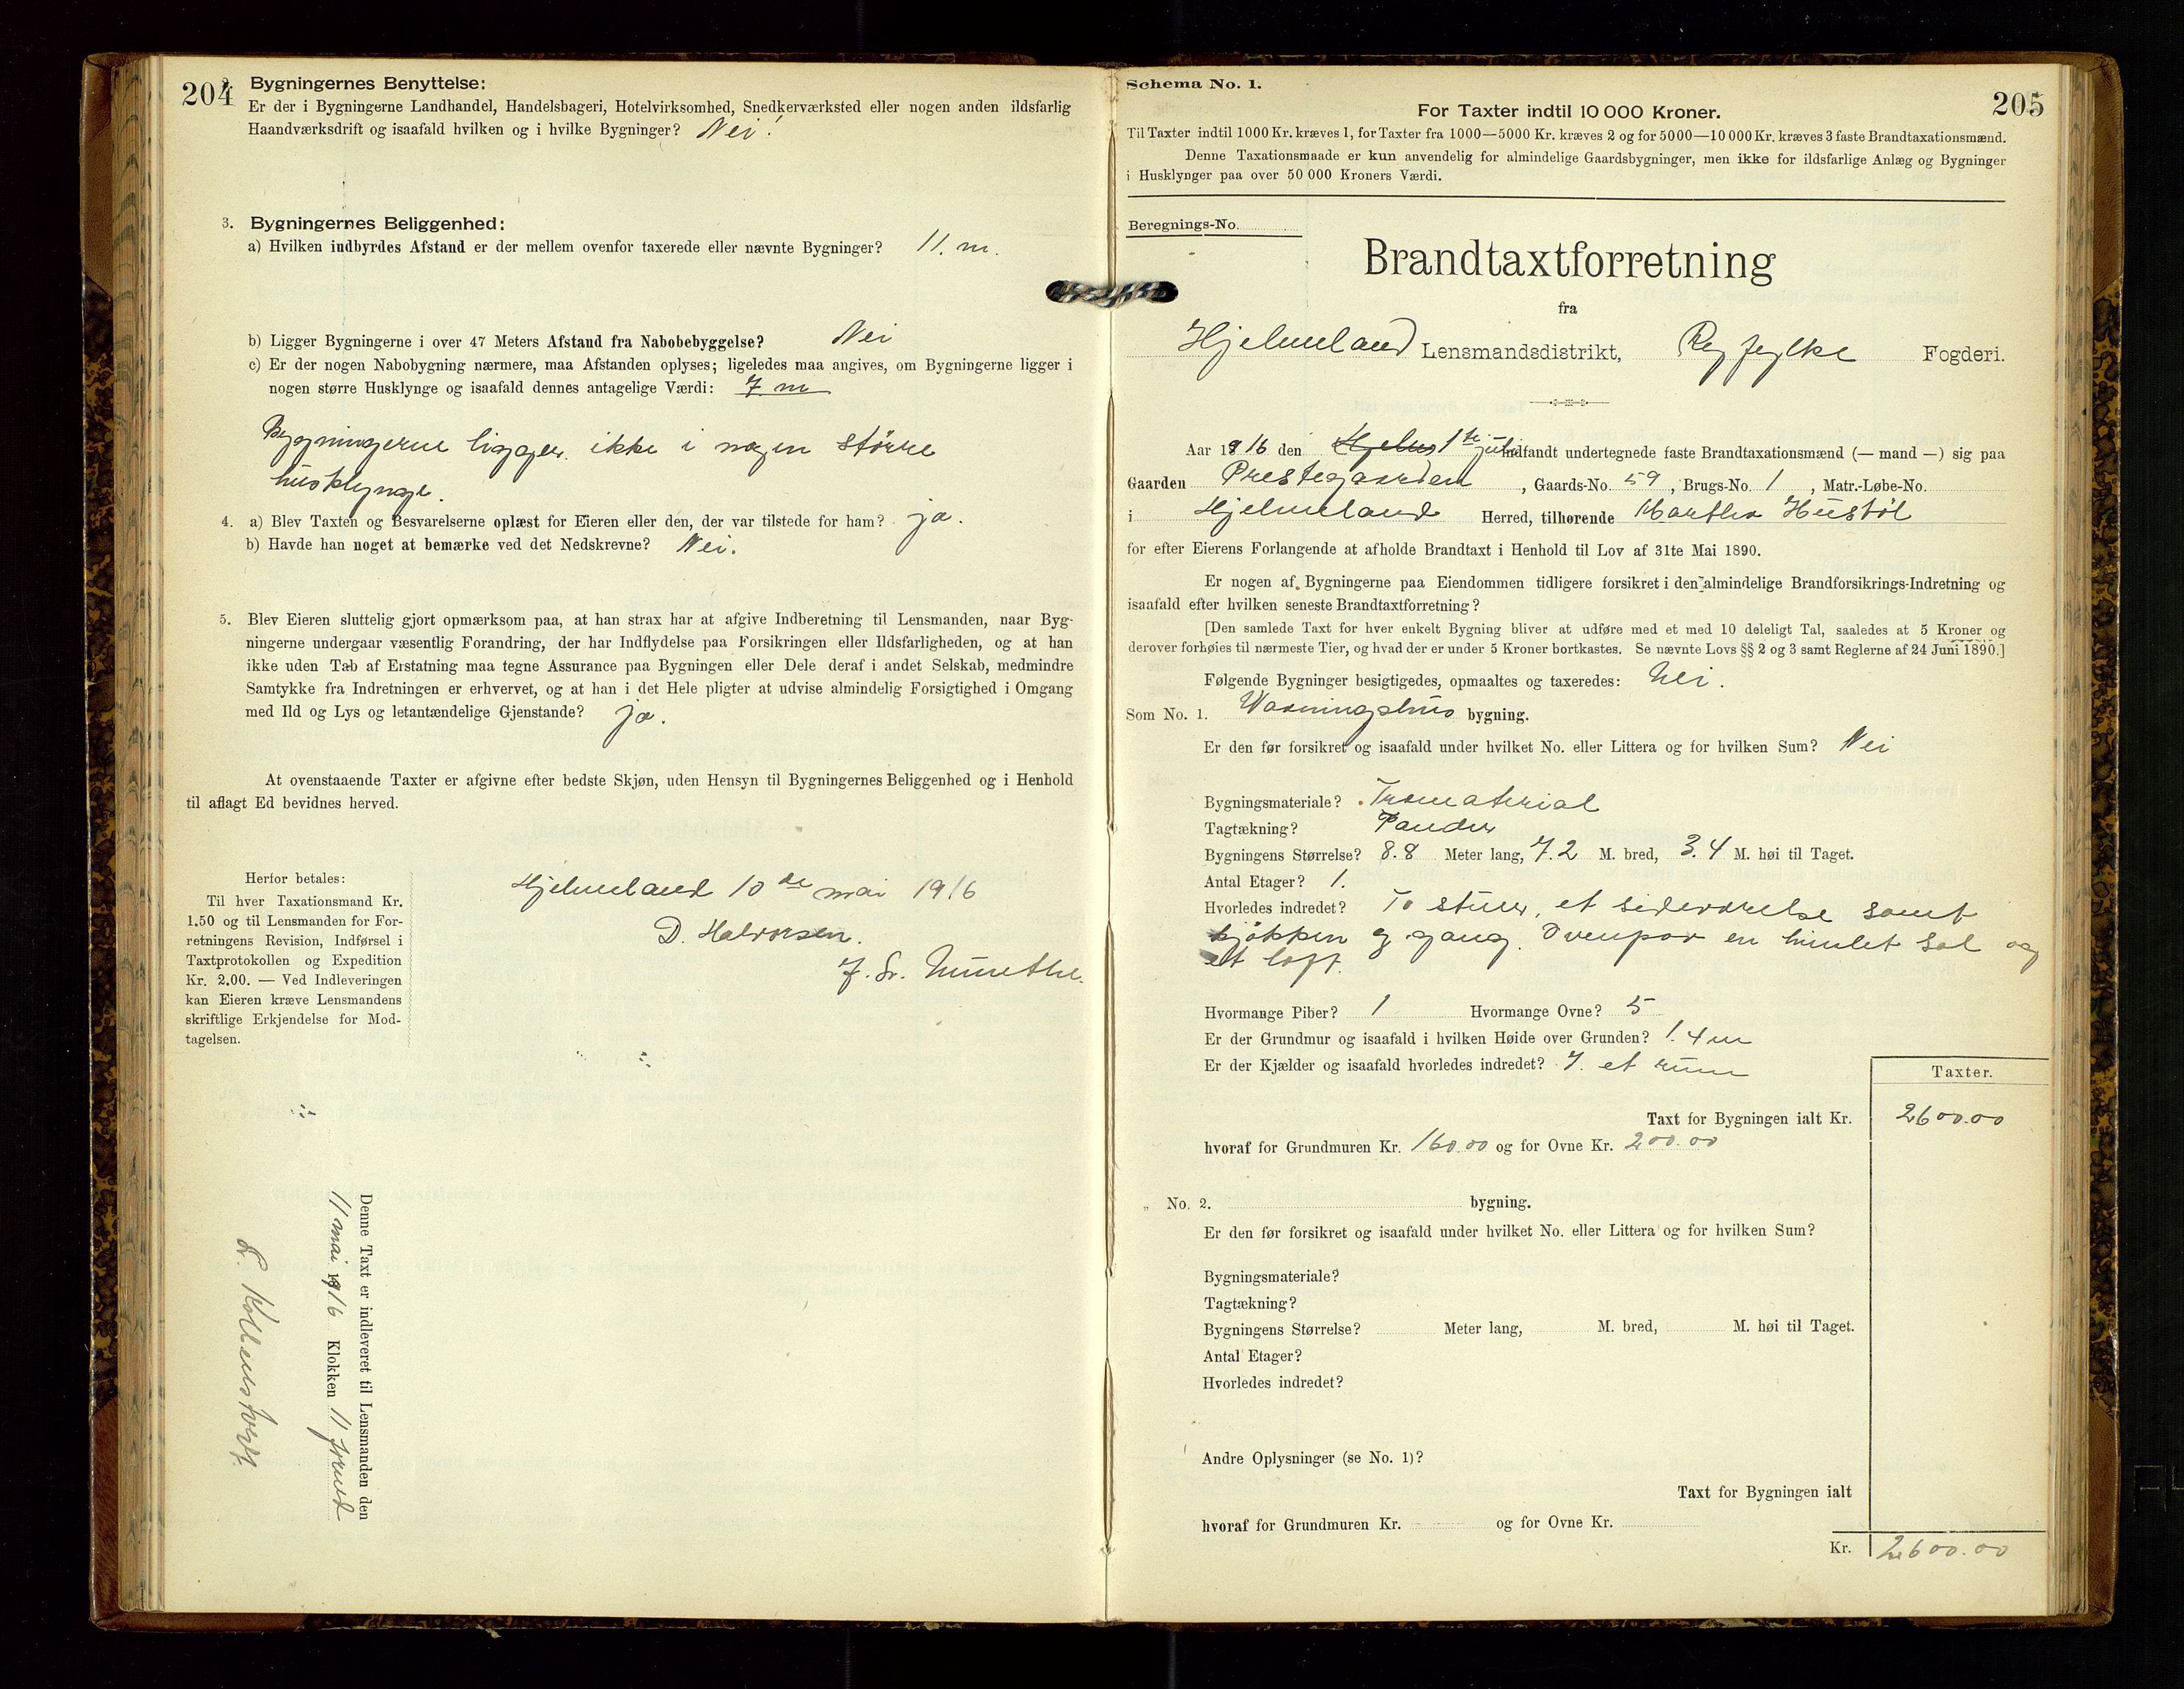 204
2. Bygningernes Benyttelse:
Er der i Bygningerne Landhandel, Handelsbageri, Hotelvirksomhed, Snedkerværksted eller nogen anden ildsfarlig
Haandværksdrift og isaafald hvilken og i hvilke Bygninger? Nei!
3. Bygningernes Beliggenhed:
a) Hvilken indbyrdes Afstand er der mellem ovenfor taxerede eller nævnte Bygninger? 11. m.
b) Ligger Bygningerne i over 47 Meters Afstand fra Nabobebyggelse? Nei
c) Er der nogen Nabobygning nærmere, maa Afstanden oplyses; ligeledes maa angives, om Bygningerne ligger i
nogen større Husklynge og isaafald dennes antagelige Værdi: 7 m
Bygningerne ligger ikke i nogen större
husklynge.
4. a) Blev Taxten og Besvarelserne oplæst for Eieren eller den, der var tilstede for ham? ja.
b) Havde han noget at bemærke ved det Nedskrevne? Nei.
5. Blev Eieren sluttelig gjort opmærksom paa, at han strax har at afgive Indberetning til Lensmanden, naar Byg-
ningerne undergaar væsentlig Forandring, der har Indflydelse paa Forsikringen eller Ildsfarligheden, og at han
ikke uden Tab af Erstatning maa tegne Assurance paa Bygningen eller Dele deraf i andet Selskab, medmindre
Samtykke fra Indretningen er erhvervet, og at han i det Hele pligter at udvise almindelig Forsigtighed i Omgang
med Ild og Lys og letantændelige Gjenstande? ja.
At ovenstaaende Taxter er afgivne efter bedste Skjøn, uden Hensyn til Bygningernes Beliggenhed og i Henhold
til aflagt Ed bevidnes herved.
Herfor betales:
Til hver Taxationsmand Kr.
1.50 og til Lensmanden for For-
retningens Revision, Indførsel i
Taxtprotokollen og Expedition
Kr. 2.00. — Ved Indleveringen
kan Eieren kræve Lensmandens
skriftlige Erkjendelse for Mod-
tagelsen.
Hjelmeland 10 de mai 1916
D. Halvorsen.
Denne Taxt er indleveret til Lensmanden den
11 mai 1916 Klokken 11 formd
205
Schema No. 1.
For Taxter indtil 10 000 Kroner.
Til Taxter indtil 1000 Kr. kræves 1, for Taxter fra 1000—5000 Kr. kræves 2 og for 5000—10 000 Kr. kræves 3 faste Brandtaxationsmænd.
Denne Taxationsmaade er kun anvendelig for almindelige Gaardsbygninger, men ikke for ildsfarlige Anlæg og Bygninger
i Husklynger paa over 50 000 Kroners Værdi.
Beregnings-No.
Brandtaxtforretning
fra
Hjelmeland Lensmandsdistrikt, Ryfylke Fogderi.
Aar 1916 den Hjelm 1 te juli indfandt undertegnede faste Brandtaxationsmænd (— mand —) sig paa
Gaarden Prestegaarden, Gaards-No. 59, Brugs-No. 1, Matr.-Løbe-No.
i Hjelmeland Herred, tilhørende Martha Hustöl
for efter Eierens Forlangende at afholde Brandtaxt i Henhold til Lov af 31te Mai 1890.
Er nogen af Bygningerne paa Eiendommen tidligere forsikret i den almindelige Brandforsikrings-Indretning og
isaafald efter hvilken seneste Brandtaxtforretning?
[Den samlede Taxt for hver enkelt Bygning bliver at udføre med et med 10 deleligt Tal, saaledes at 5 Kroner og
derover forhøies til nærmeste Tier, og hvad der er under 5 Kroner bortkastes. Se nævnte Lovs §§ 2 og 3 samt Reglerne af 24 Juni 1890.]
Følgende Bygninger besigtigedes, opmaaltes og taxeredes: Nei.
Som No. 1. Vaaningshus bygning.
Er den før forsikret og isaafald under hvilket No. eller Littera og for hvilken Sum? Nei
Bygningsmateriale? Træmaterial
Tagtækning? Pander
Bygningens Størrelse? 8.8 Meter lang, 7.2 M. bred, 3.4 M. høi til Taget.
Antal Etager? 1.
Hvorledes indredet? To stuer, et sideværelse samt
kjökken og gang. Ovenpaa en himlet sal og
et loft.
Hvormange Piber? 1 Hvormange Ovne? 5
Er der Grundmur og isaafald i hvilken Høide over Grunden? 1.4 m
Er der Kjælder og isaafald hvorledes indredet? J. et rum
Taxter.
Taxt for Bygningen ialt Kr. 2600.00
hvoraf for Grundmuren Kr. 160.00 og for Ovne Kr. 200.00
„ No. 2. bygning.
Er den før forsikret og isaafald under hvilket No. eller Littera og for hvilken Sum?
Bygningsmateriale?
Tagtækning?
Bygningens Størrelse? Meter lang, M. bred, M. høi til Taget.
Antal Etager?
Hvorledes indredet?
Andre Oplysninger (se No. 1)?
Taxt for Bygningen ialt
hvoraf for Grundmuren Kr. og for Ovne Kr.
Kr. 2600.00